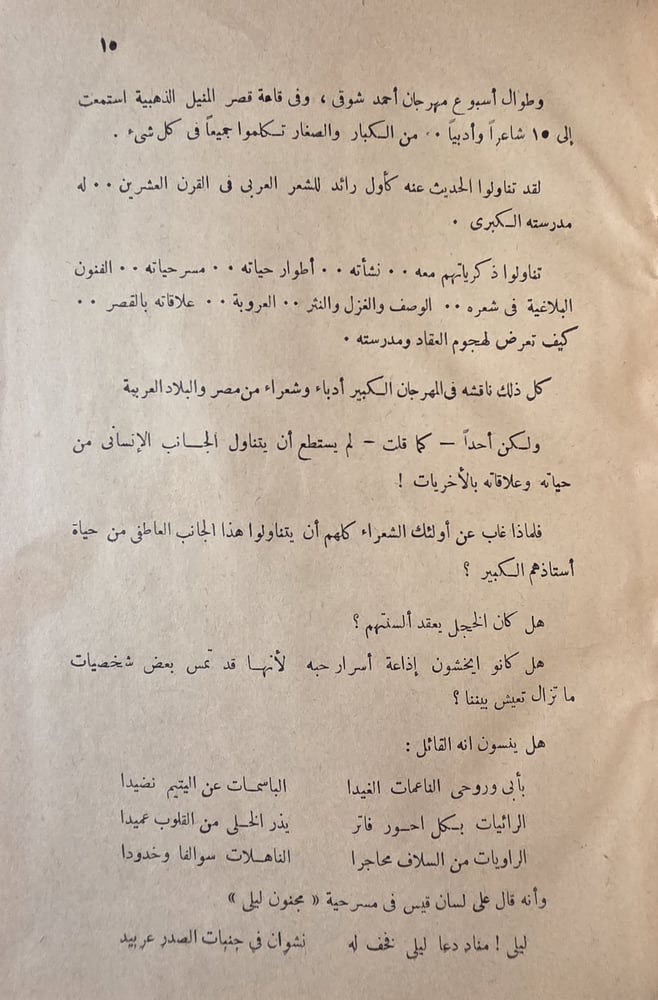 ١٥
وطوال أسبوع مهرجان أحمد شوقى ، وفى قاعة قصر المنيل الذهبية استمعت
إلى ١٥ شاعراً وأدبياً ٠٠ من الكبار والصغار تكلموا جميعاً فى كل شىء .
لقد تناولوا الحديث عنه كأول رائد للشعر العربى فى القرن العشرين ٠٠ له
مدرسته الكبرى ٠
تفاولوا ذكرياتهم معه ٠٠ نشأته ٠٠ أطوار حياته ٠٠ مسرحياته ٠٠ الفنون
البلاغية فى شعره ٠٠ الوصف والغزل والنثر ٠٠ العروبة ٠٠ علاقاته بالقصر ٠٠
كيف تعرض لهجوم العقاد ومدرسته ٠
كل ذلك ناقشه فى المهرجان الكبير أدباء وشعراء من مصر والبلاد العربية
ولكن أحداً — كما قلت — لم يستطع أن يتناول الجانب الإنسانى من
حياته وعلاقاته بالأخريات !
فلماذا غاب عن أولئك الشعراء كلهم أن يتناولوا هذا الجانب العاطفى من حياة
أستاذهم الكبير ؟
هل كان الخجل يعقد ألسنتهم ؟
هل كانو ايخشون إذاعة أسرار حبه لأنها قد تمس بعض شخصيات
ما تزال تعيش بيننا ؟
هل ينسون انه القائل :
بأبى وروحى الناعمات الغيدا الباسمات عن اليتيم نضيدا
الرائيات بكل احور فاتر يذر الخلى من القلوب عميدا
الراويات من السلاف محاجرا الناهلات سوالفا وخدودا
وأنه قال على لسان قيس فى مسرحية « مجنون ليلى »
ليلى ! مناد دعا ليلى فخف له نشوان في جنبات الصدر عربيد